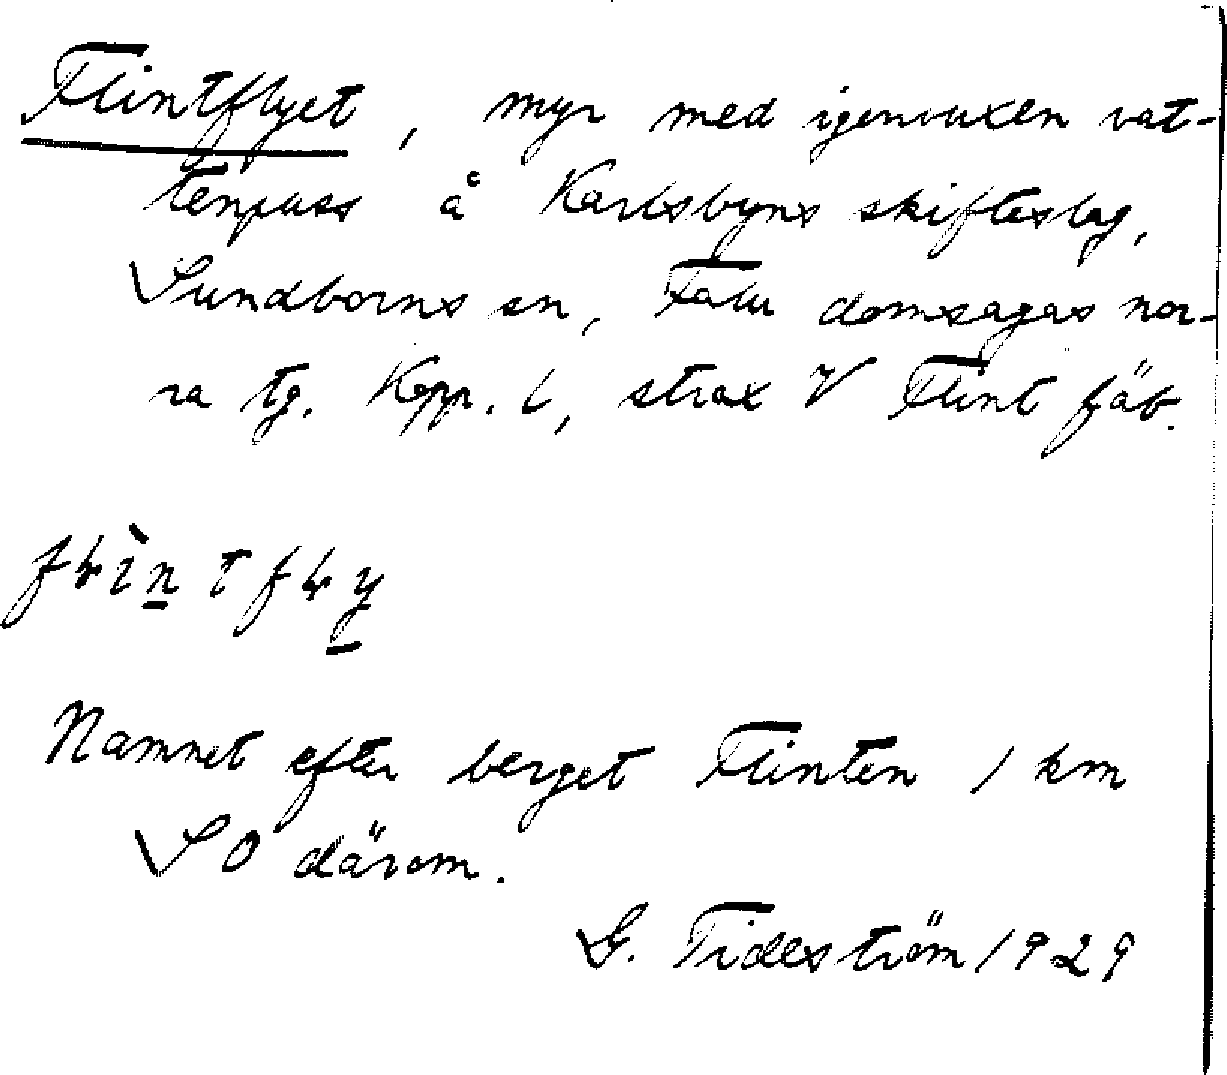 Flintflyet, myr med igenvuxen vat-
tenpuss å Karlsbyns skifteslag,
Sundborns sn, Falu domsagas nor-
ra tg. Kopp. l, strax V Flint fäb.
Namnet efter berget Flinten 1 km
SO därom.
G. Tideström 1929